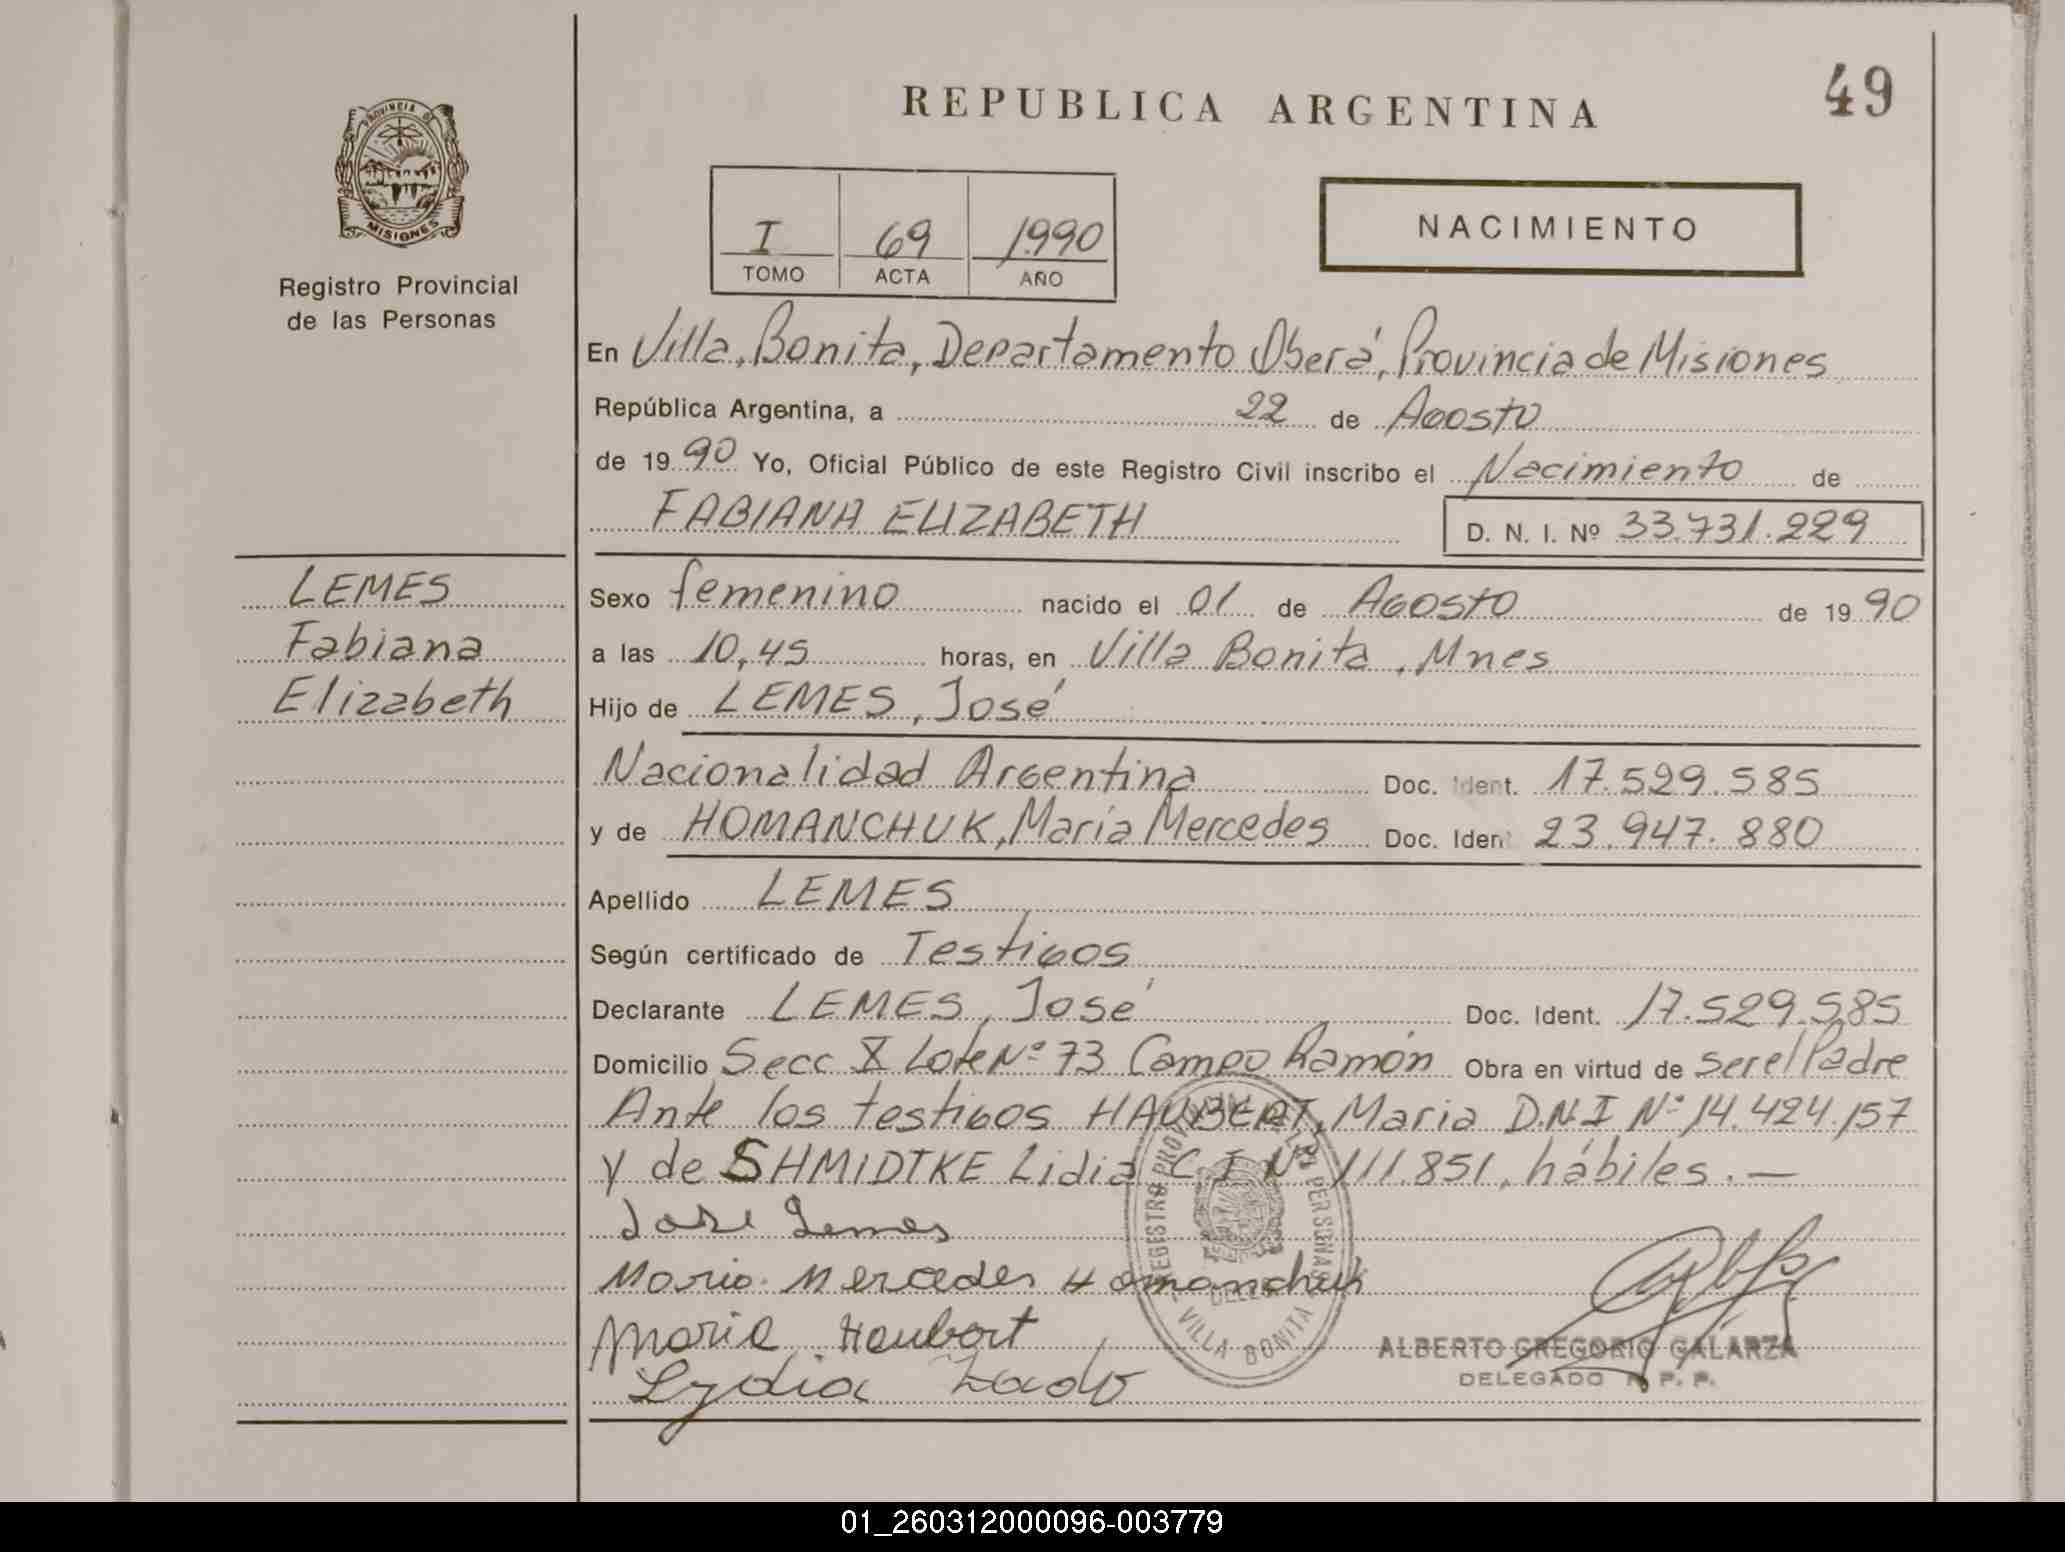 49
REPUBLICA ARGENTINA
PROVINCIA DE
MISIONES
Registro Provincial
de las Personas
I 69 1.990
TOMO ACTA AÑO
NACIMIENTO
En Villa, Bonita, Departamento Oberá, Provincia de Misiones
República Argentina, a 22 de Agosto
de 19 90 Yo, Oficial Público de este Registro Civil inscribo el Nacimiento de
FABIANA ELIZABETH D. N. I. Nº 33.731.229
LEMES
Fabiana
Elizabeth
Sexo femenino nacido el 01 de Agosto de 19 90
a las 10,45 horas, en Villa Bonita, Mnes
Hijo de LEMES, José
Nacionalidad Argentina Doc. Ident. 17.529.585
y de HOMANCHUK, María Mercedes Doc. Ident 23.947.880
Apellido LEMES
Según certificado de Testigos
Declarante LEMES, José Doc. Ident. 17.529.585
Domicilio Secc X Lote Nº 73 Campo Ramón Obra en virtud de ser el Padre
Ante los testigos HAUBERT, Maria D.N.I Nº 14.424.157
y de SHMIDTKE Lidia C I Nº 111.851, hábiles. —
José Lemes
Maria Mercedes Homanchuk
Maria Haubert
Lydia
REGISTRO PROVINCIAL DE LAS PERSONAS
VILLA BONITA
ALBERTO GREGORIO GALARZA
DELEGADO R. P. P.
01_260312000096-003779